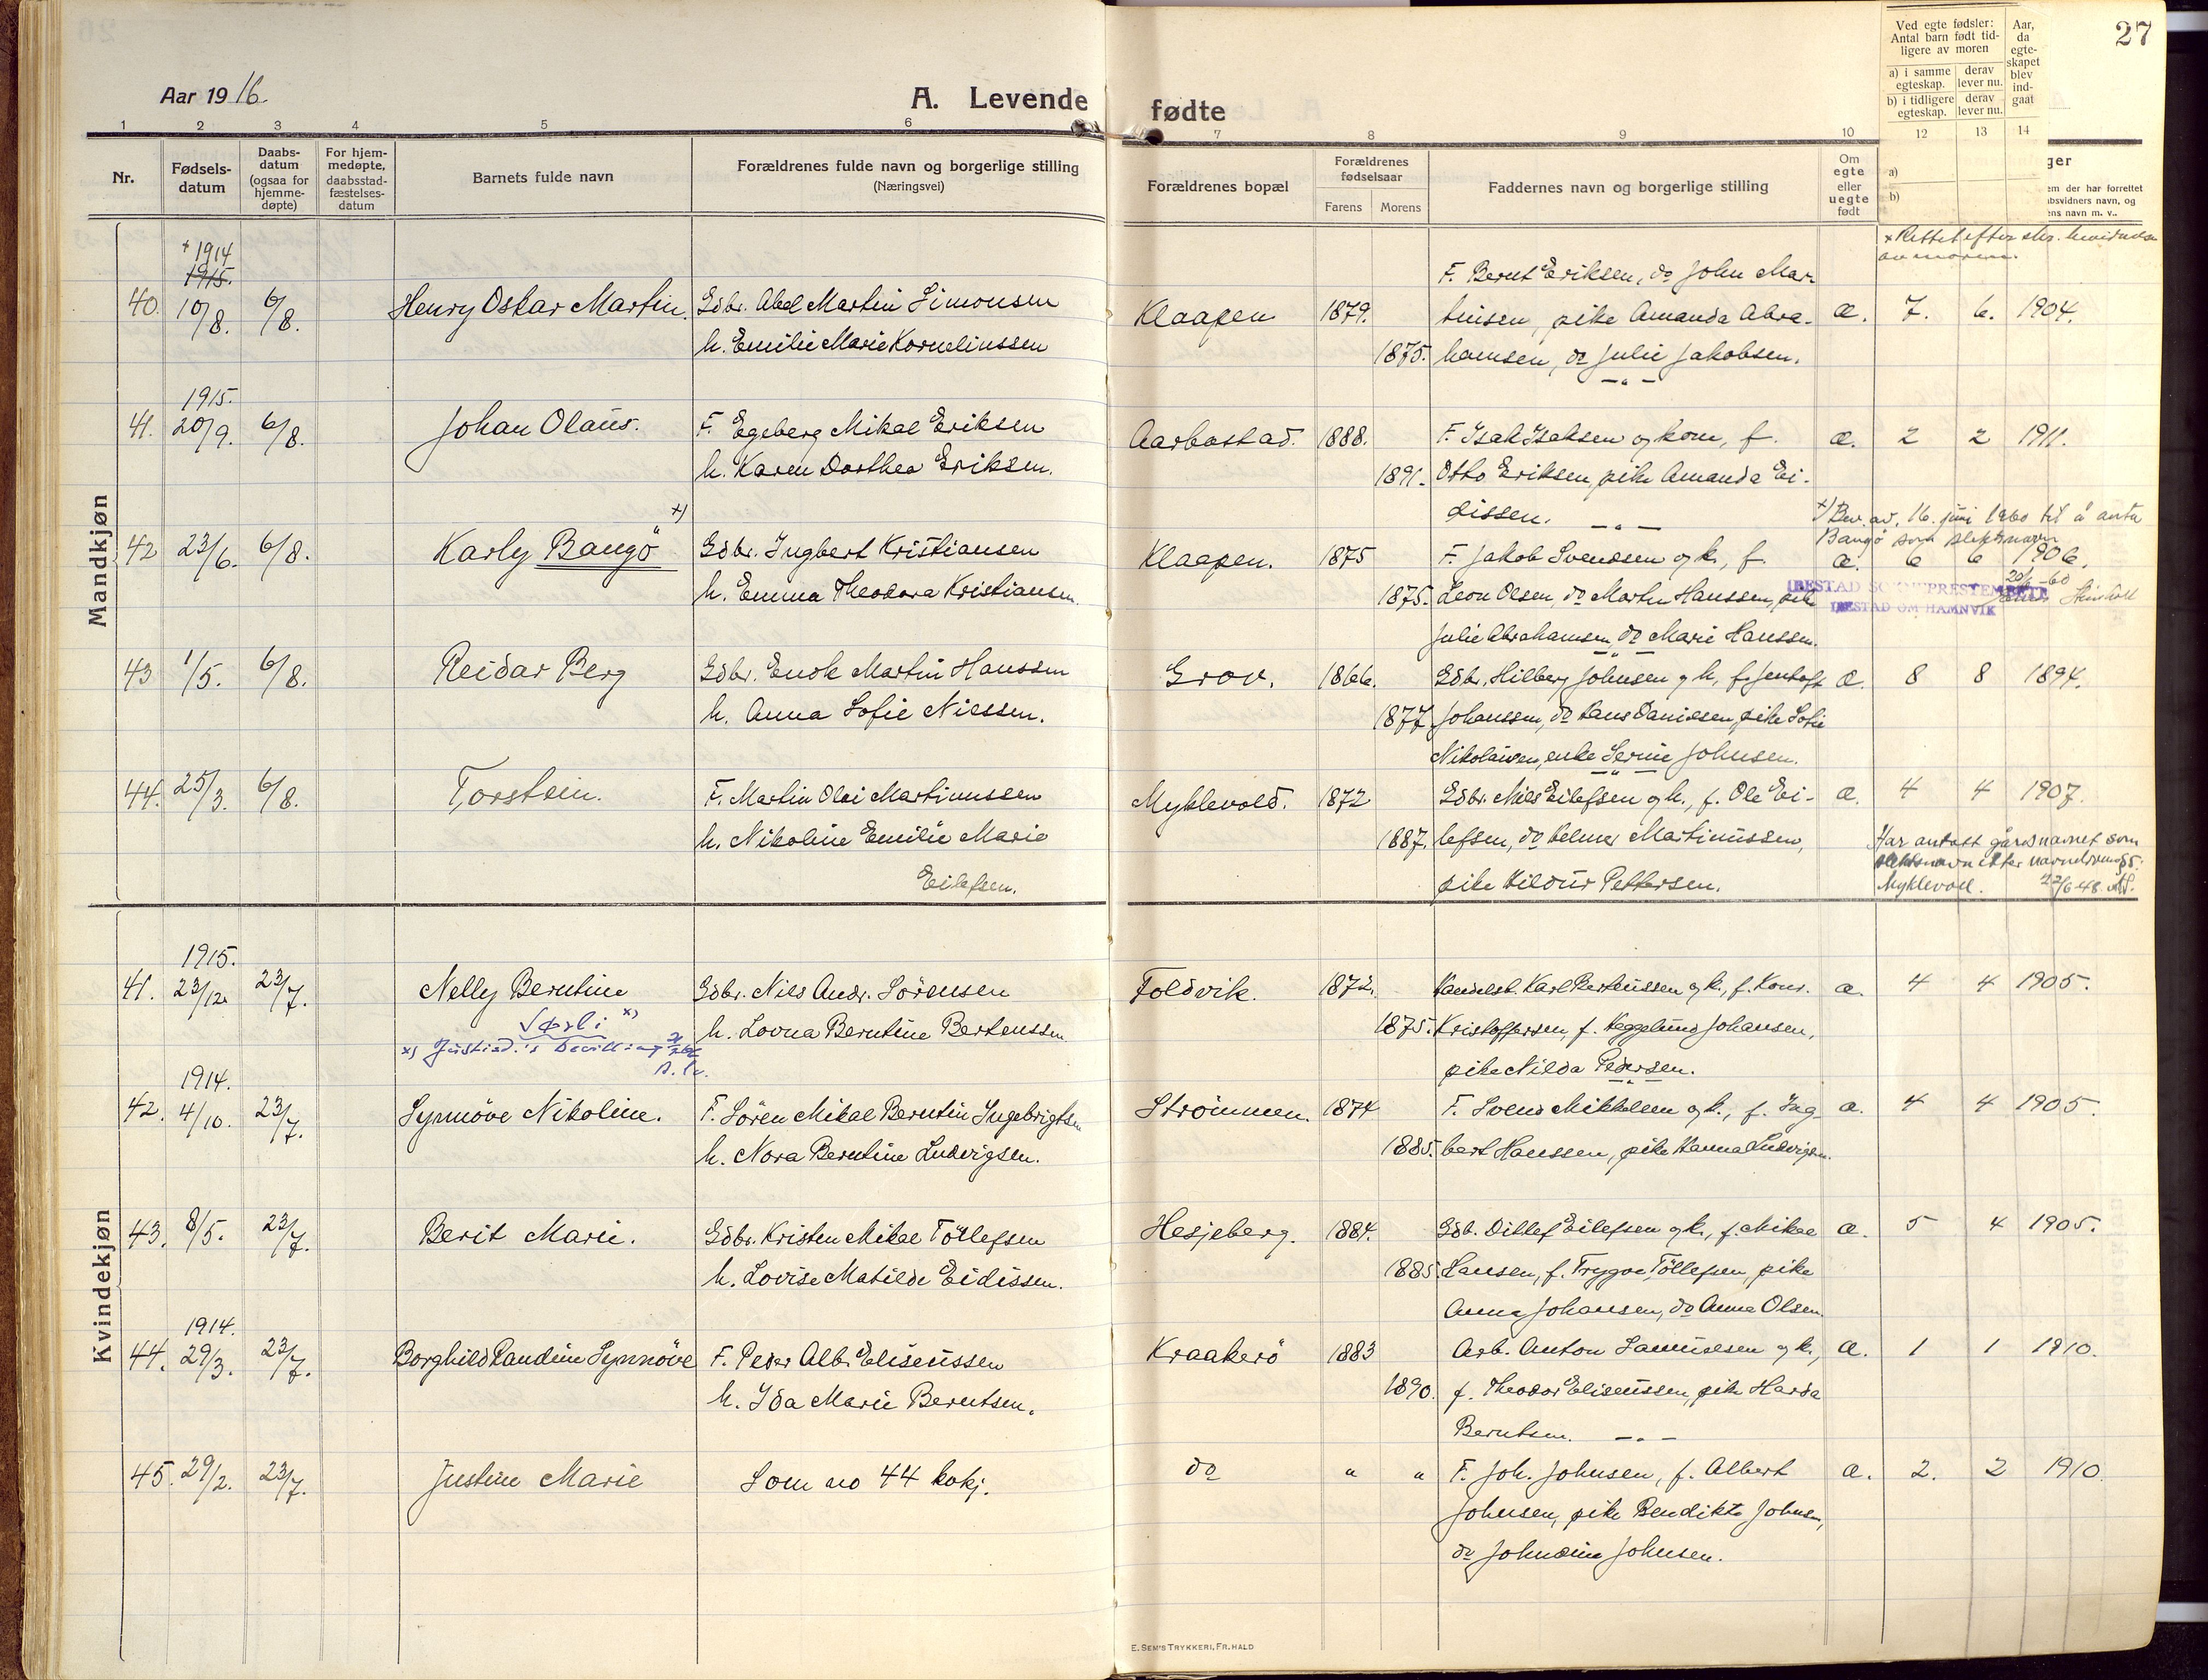 27
Aar 1916.
A. Levende fødte
Ved egte fødsler: Antal barn født tidligere av moren
a) i samme egteskap. derav lever nu.
b) i tidligere egteskap. derav lever nu.
Aar, da egteskapet blev indgaat
1 2 3 4 5 6 7 8 9 10 12 13 14
Nr. Fødselsdatum Daabsdatum (ogsaa for hjemmedøpte) For hjemmedøpte, daabsstadfæstelsesdatum Barnets fulde navn Forældrenes fulde navn og borgerlige stilling (Næringsvei) Forældrenes bopæl Forældrenes fødselsaar Farens Morens Faddernes navn og borgerlige stilling Om egte eller uegte født a) b)
ger
em der har forrettet
absvidners navn, og
ens navn m. v..
Mandkjøn
x Rettet efter
av moren.
x 1914
1915.
F. Bernt Eriksen, do John Mar-
40. 10/8. 6/8. Henry Oskar Martin. Gdbr. Abel Martin Simonsen Klaapen 1879. tinsen, pike Amanda Abra- æ. 7. 6. 1904.
h. Emilie Marie Korneliussen 1875. hamsen, do Julie Jakobsen.
1915.
41. 20/9. 6/8. Johan Olaus. F. Egeberg Mikal Eriksen Aarbostad. 1888. F. Isak Isaksen og kone, f. æ. 2 2 1911.
h. Karen Dorthea Eriksen. 1891. Otto Eriksen, pike Amanda Ei-
dissen.
x) Bev. av. 16. juni 1960 til å anta
Bangø som slektsnavn
42 23/6. 6/8. Karly Bangö x) Gdbr. Ingbert Kristiansen Klaapen. 1875 F. Jakob Svendsen og k., f. æ. 6 6 1906.
20/6-60
h. Emma Theodora Kristiansen. 1875. Leon Olsen, do Martin Hanssen, pike
IBESTAD SOKNEPRESTEMBETE
IBESTAD OM HAMNVIK
Julie Abrahamsen, do Marie Hanssen.
43 1/5. 6/8. Reidar Berg Gdbr. Enok Martin Hanssen Grov. 1866. Gdbr. Hilberg Johnsen og h., f. Jentoft æ. 8 8 1894.
h. Anna Sofie Nilssen. 1877. Johanssen, do Hans Danielsen, pike Sofie
Nikolaisen, enke Serine Johnsen.
44. 25/3. 6/8. Torstein. F. Martin Olai Martinussen Myklevold. 1872 Gdbr. Nils Eilefsen og h., f. Ole Ei- æ. 4 4 1907.
h. Nikoline Emilie Marie Eilefsen. 1887. lefsen, do Helmer Martinussen,
pike Hildur Pettersen.
Har antatt gårdsnavnet som
slektsnavn etter
Myklevoll. 22/6 48.
Kvindekjøn
1915.
41. 23/12. 23/7. Nelly Berntine Gdbr. Nils Andr. Sörensen Foldvik. 1872. Handelsb. Karl Bertenssen og k., f. Konr. æ. 4 4 1905.
Vørli x)
h. Lovna Berntine Bertenssen. 1875. Kristoffersen, f. Heggelund Johansen,
x) Justisd.'s bevilling
pike Nilda Pedersen.
1914.
42. 4/10. 23/7. Synnöve Nikoline. F. Sören Mikal Berntin Ingebrigtsen Strömmen. 1874 F. Svend Mikkelsen og k., f. Ing- æ. 4 4 1905.
h. Nora Berntine Ludvigsen. 1885. bert Hanssen, pike Hanna Ludvigsen.
43. 8/5. 23/7. Berit Marie. Gdbr. Kristen Mikal Töllefsen Hesjeberg. 1884. Gdb. Ditlef Eilefsen og k., f. Mikal æ. 5 4 1905.
h. Lovise Matilde Eidissen. 1885. Hansen, f. Trygve Töllefsen, pike
Anna Johansen, do Anna Olsen.
1914.
44. 29/3. 23/7. Borghild Randine Synnöve F. Peder Alb. Eliseussen Kraakerö 1883 Arb. Anton Samuelsen og k., æ. 1 1 1910.
h. Ida Marie Berntsen. 1890. f. Theodor Eliseussen, pike Harda
Berntsen.
45. 29/2. 23/7. Justine Marie Som no 44 kvkj. do " " F. Joh. Johnsen, f. Albert æ. 2. 2 1910.
Johnsen, pike Bendikte Johnsen,
do Johndine Johnsen.
E. SEM'S TRYKKERI, FR. HALD